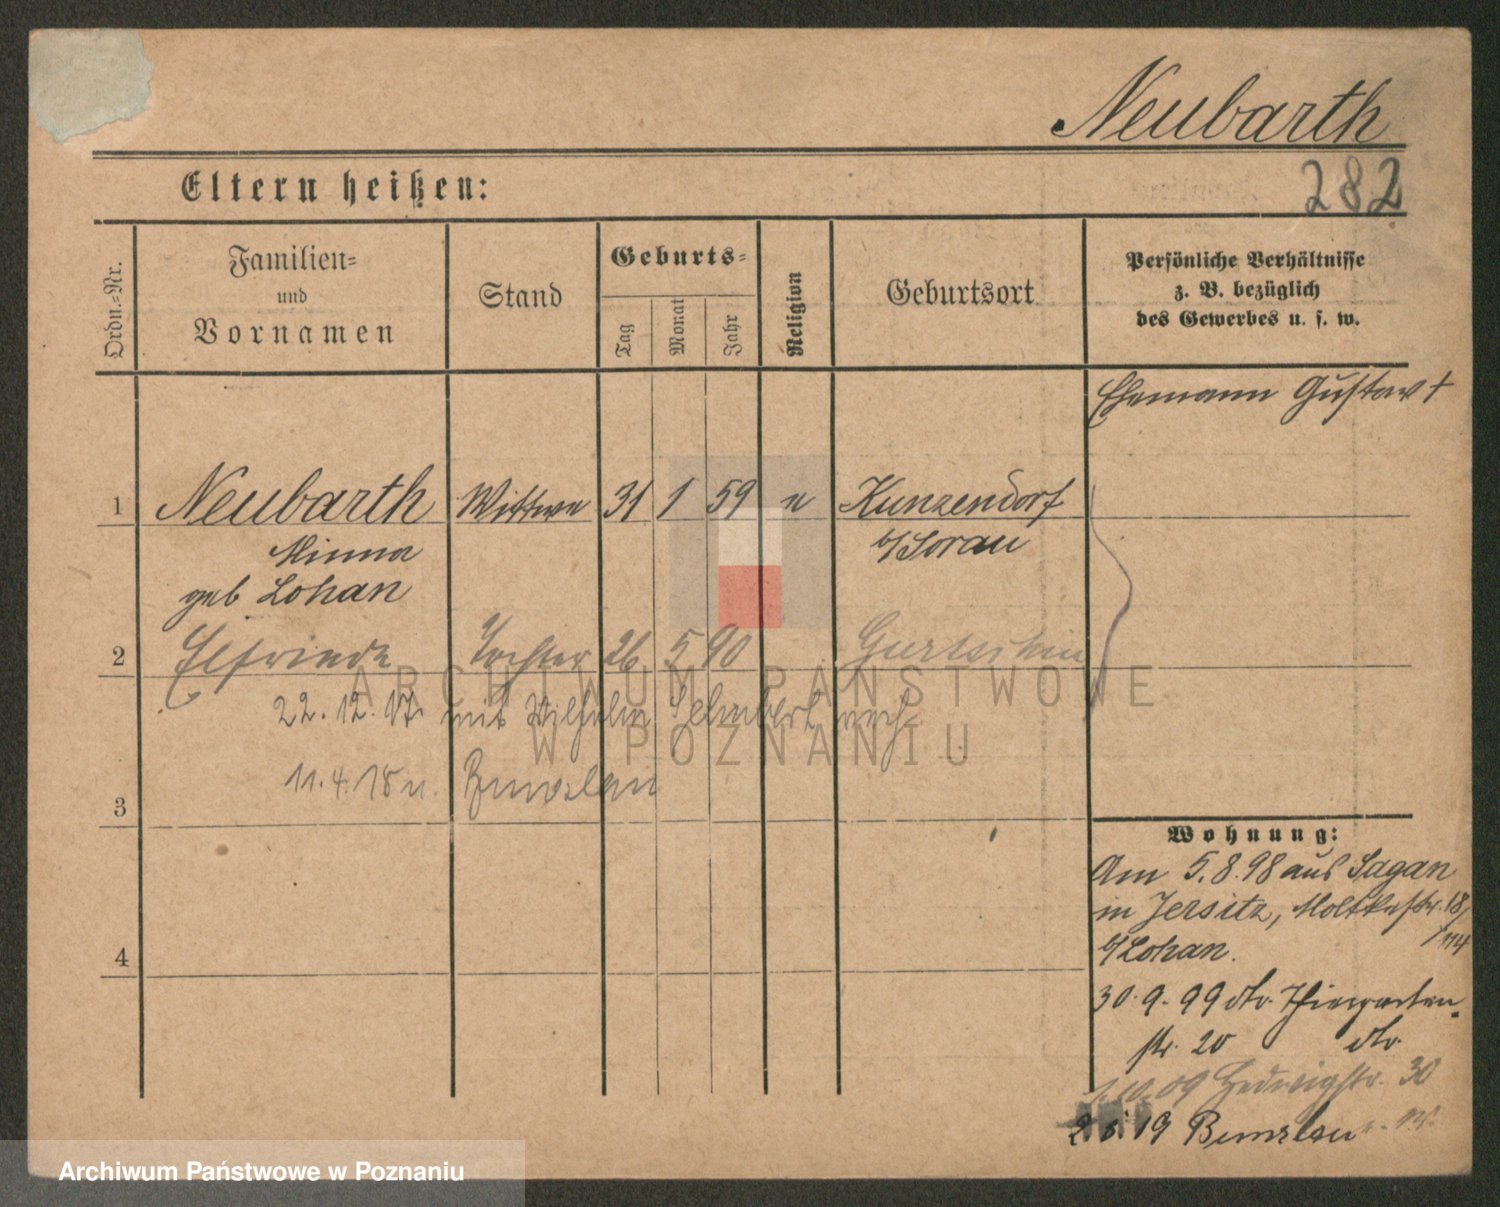 Neubarth
282
Eltern heißen:
Ordn.-Nr.
Familien-
und
Vornamen
Stand
Geburts-
Tag
Monat
Jahr
Religion
Geburtsort
Persönliche Verhältnisse
z. B. bezüglich
des Gewerbes u. s. w.
Ehemann Gustav †
1 Neubarth Wittwe 31 1 59 Kunzendorf
Minna b/Sorau
geb Lohan
2 Elfriede Tochter 26 5 90
22.12.17 mit Wilhelm
11.4.18 n. Bunzlau
3
4
Wohnung:
Am 5.8.98 aus Sagan
in Jersitz, Moltkestr. 18/
b/Lohan.
30.9.99 dto. Thiergarten-
str. 20 dto.
Hedwigstr. 30
19 Bunzlau
ARCHIWUM PAŃSTWOWE
W POZNANIU
Archiwum Państwowe w Poznaniu